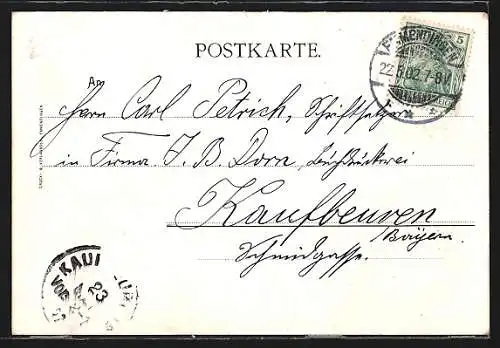 POSTKARTE.
5
22.8.02.7-8N.
Am
Herrn Carl Petrich, Schriftsetzer
in Firma J. B. Dorn, Buchdruckerei
Kaufbeuren
Bayern.
Schmidgasse.
KAUF
23
VOR